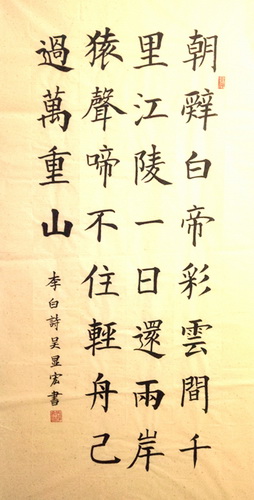 朝辭白帝彩雲間千
里江陵一日還兩岸
猿聲啼不住輕舟己
過萬重山
李白詩吴显宏書